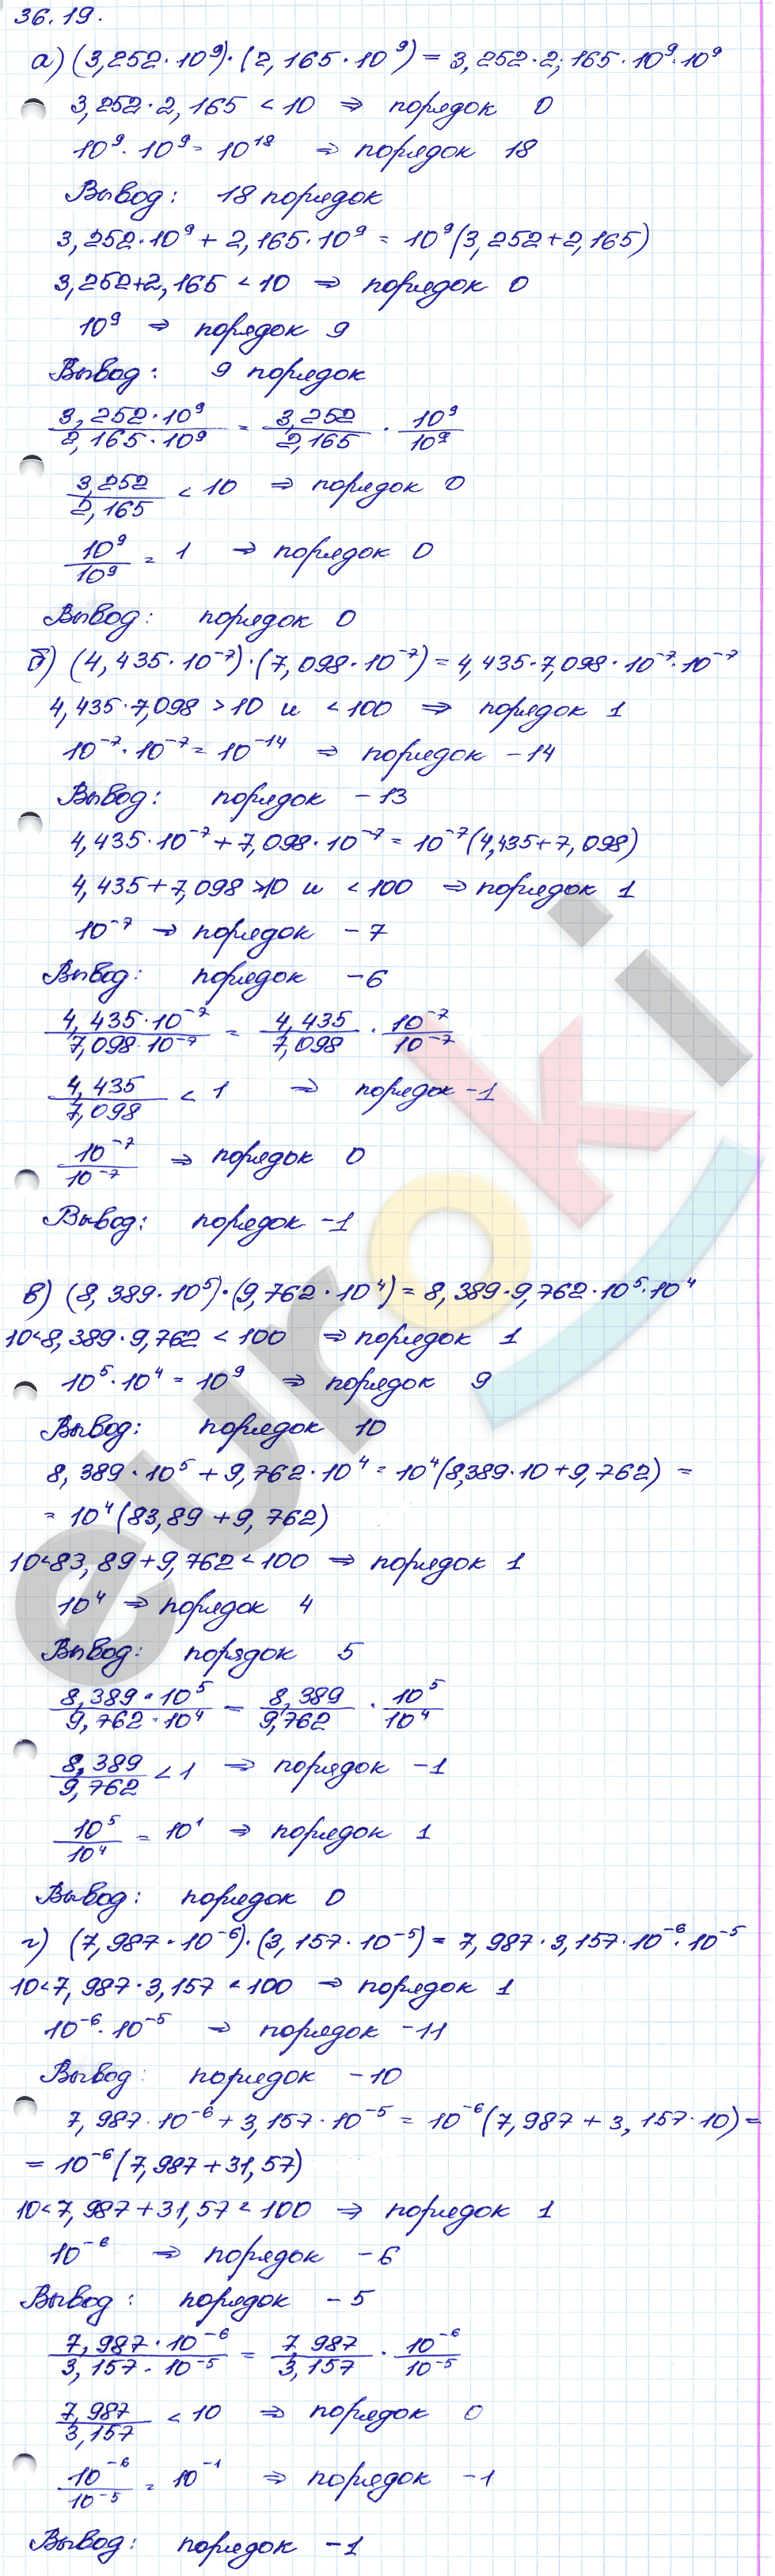 36.19.
а) (3,252·10⁹)·(2,165·10⁹) = 3,252·2,165·10⁹·10⁹
3,252·2,165 < 10 ⇒ порядок 0
10⁹·10⁹ = 10¹⁸ ⇒ порядок 18
Вывод: 18 порядок
3,252·10⁹ + 2,165·10⁹ = 10⁹(3,252+2,165)
3,252+2,165 < 10 ⇒ порядок 0
10⁹ ⇒ порядок 9
Вывод: 9 порядок
3,252·10⁹/2,165·10⁹ = 3,252/2,165 · 10⁹/10⁹
3,252/2,165 < 10 ⇒ порядок 0
10⁹/10⁹ = 1 ⇒ порядок 0
Вывод: порядок 0
б) (4,435·10⁻⁷)·(7,098·10⁻⁷) = 4,435·7,098·10⁻⁷·10⁻⁷
4,435·7,098 > 10 и < 100 ⇒ порядок 1
10⁻⁷·10⁻⁷ = 10⁻¹⁴ ⇒ порядок -14
Вывод: порядок -13
4,435·10⁻⁷ + 7,098·10⁻⁷ = 10⁻⁷(4,435+7,098)
4,435+7,098 >10 и < 100 ⇒ порядок 1
10⁻⁷ ⇒ порядок -7
Вывод: порядок -6
4,435·10⁻⁷/7,098·10⁻⁷ = 4,435/7,098 · 10⁻⁷/10⁻⁷
4,435/7,098 < 1 ⇒ порядок -1
10⁻⁷/10⁻⁷ ⇒ порядок 0
Вывод: порядок -1
в) (8,389·10⁵)·(9,762·10⁴) = 8,389·9,762·10⁵·10⁴
10<8,389·9,762 < 100 ⇒ порядок 1
10⁵·10⁴ = 10⁹ ⇒ порядок 9
Вывод: порядок 10
8,389·10⁵ + 9,762·10⁴ = 10⁴(8,389·10+9,762) =
= 10⁴(83,89+9,762)
10<83,89+9,762<100 ⇒ порядок 1
10⁴ ⇒ порядок 4
Вывод: порядок 5
8,389·10⁵/9,762·10⁴ = 8,389/9,762 · 10⁵/10⁴
8,389/9,762 < 1 ⇒ порядок -1
10⁵/10⁴ = 10¹ ⇒ порядок 1
Вывод: порядок 0
г) (7,987·10⁻⁶)·(3,157·10⁻⁵) = 7,987·3,157·10⁻⁶·10⁻⁵
10<7,987·3,157 < 100 ⇒ порядок 1
10⁻⁶·10⁻⁵ ⇒ порядок -11
Вывод: порядок -10
7,987·10⁻⁶ + 3,157·10⁻⁵ = 10⁻⁶(7,987 + 3,157·10) =
= 10⁻⁶(7,987+31,57)
10<7,987+31,57 < 100 ⇒ порядок 1
10⁻⁶ ⇒ порядок -6
Вывод: порядок -5
7,987·10⁻⁶/3,157·10⁻⁵ = 7 987/3,157 · 10⁻⁶/10⁻⁵
7,987/3,157 < 10 ⇒ порядок 0
10⁻⁶/10⁻⁵ = 10⁻¹ ⇒ порядок -1
Вывод: порядок -1
euroki